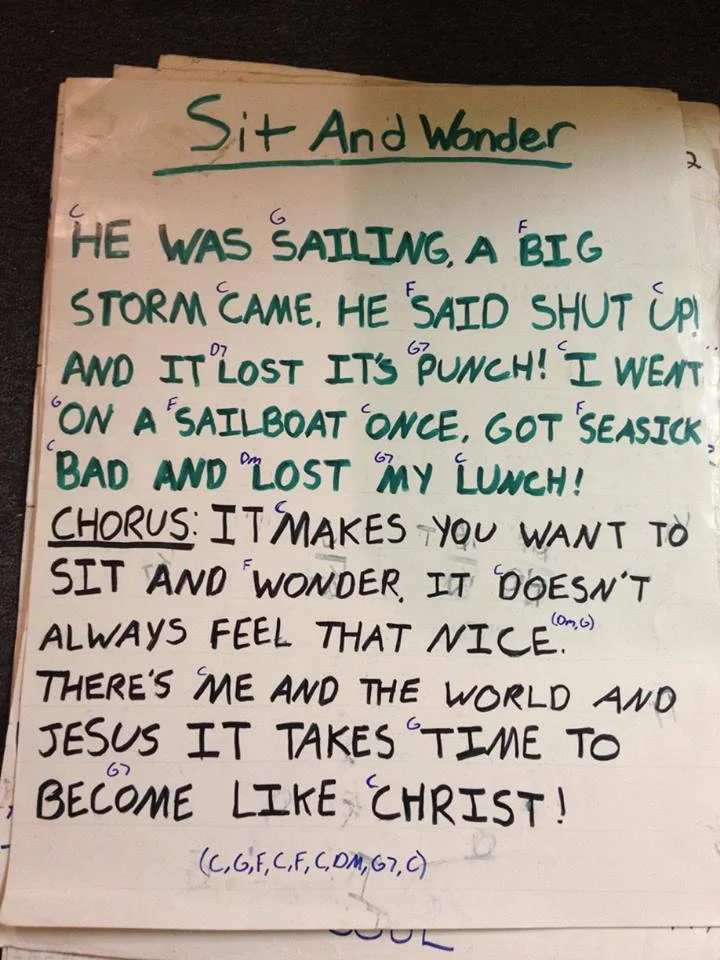 Sit And Wonder
2
C G F
HE WAS SAILING, A BIG
C F C
STORM CAME, HE SAID SHUT UP!
D7 G7 C
AND IT LOST IT'S PUNCH! I WENT
G F C F
ON A SAILBOAT ONCE, GOT SEASICK,
C Dm G7 C
BAD AND LOST MY LUNCH!
C
CHORUS: IT MAKES YOU WANT TO
F C
SIT AND WONDER, IT DOESN'T
(Dm, G)
ALWAYS FEEL THAT NICE.
C
THERE'S ME AND THE WORLD AND
G
JESUS IT TAKES TIME TO
G7 C
BECOME LIKE CHRIST!
(C, G, F, C, F, C, DM, G7, C)